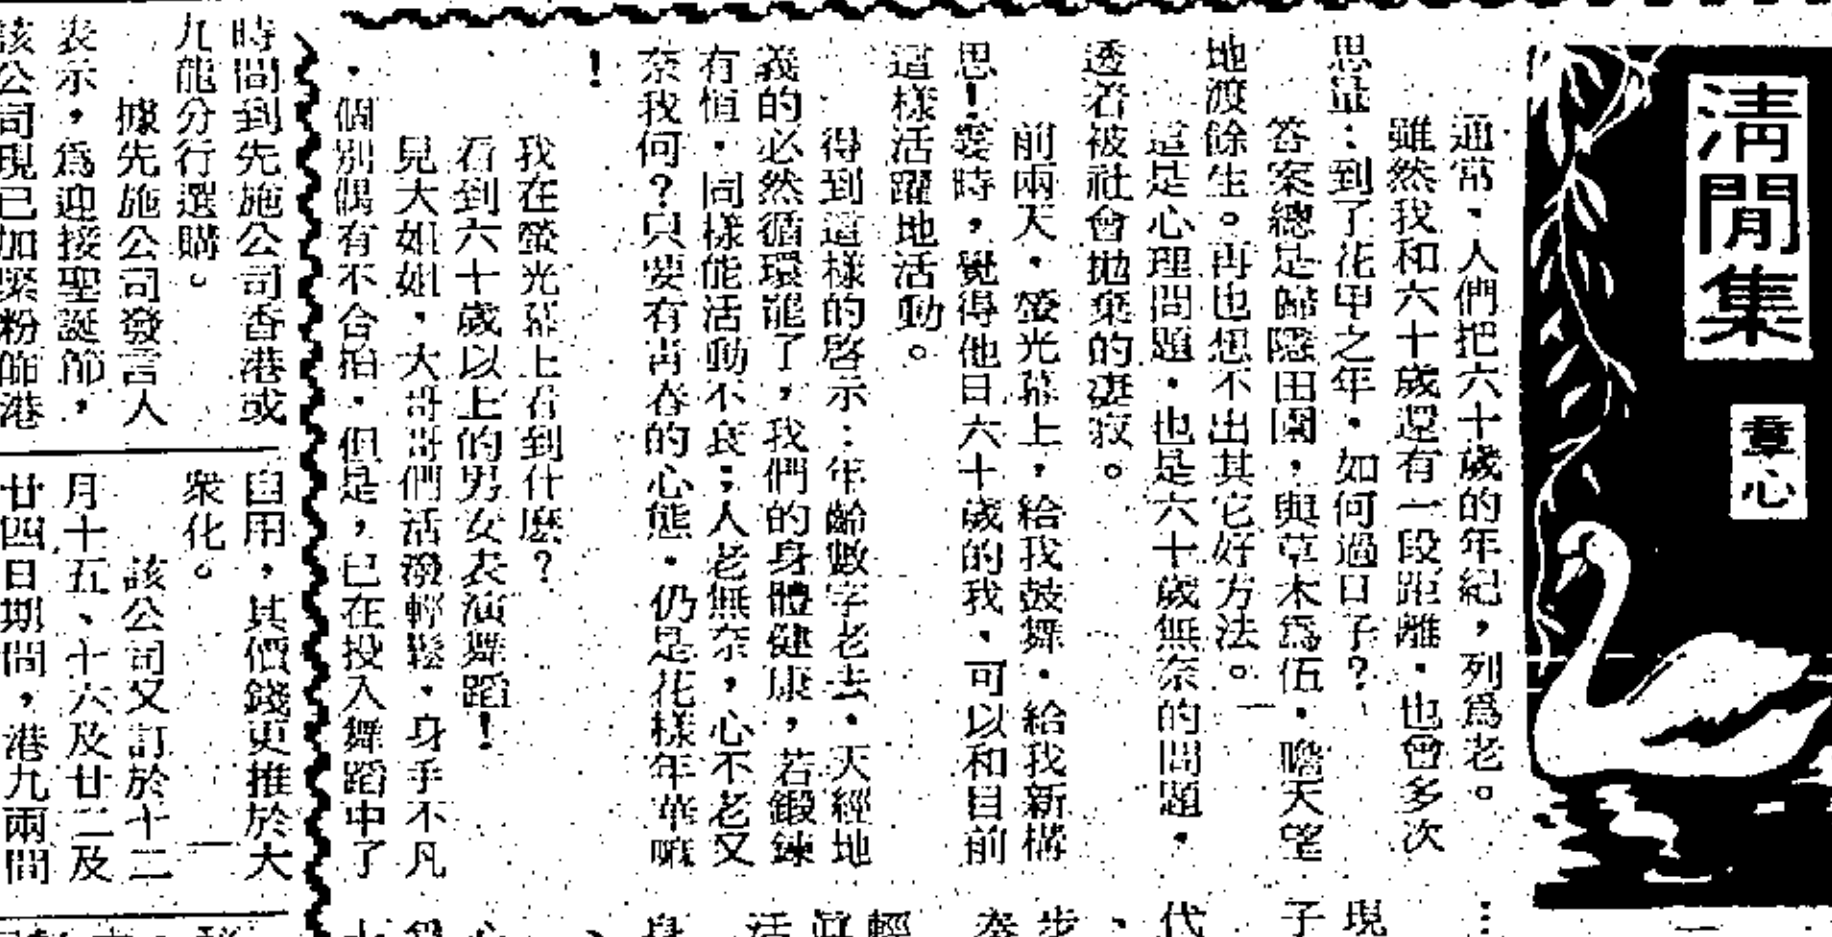 清閒集
童心
通常，人們把六十歲的年紀，列爲老。
雖然我和六十歲還有一段距離，也曾多次
思量：到了花甲之年，如何過日子？
答案總是歸隱田園，與草木爲伍，瞻天望
地渡餘生。再也想不出其它好方法。
這是心理問題，也是六十歲無奈的問題，
透着被社會拋棄的凄寂。
前兩天，螢光幕上，給我鼓舞，給我新構
思！霎時，覺得他日六十歲的我，可以和目前
這樣活躍地活動。
得到這樣的啓示：年齡數字老去，天經地
義的必然循環罷了，我們的身體健康，若鍛鍊
有恒，同樣能活動不衰；人老無奈，心不老又
奈我何？只要有靑春的心態，仍是花樣年華嘛
！
我在螢光幕上看到什麽？
看到六十歲以上的男女表演舞蹈！
見大姐姐，大哥哥們活潑輕鬆，身手不凡
，個別偶有不合拍，但是，已在投入舞蹈中了
現
子
代
步
輕
眞
活
身
時間到先施公司香港或
九龍分行選購。
據先施公司發言人
表示，爲迎接聖誕節，
該公司現已加緊粉飾港
自用，其價錢更推於大
衆化。
該公司又訂於十二
月十五、十六及廿二及
廿四日期間，港九兩間